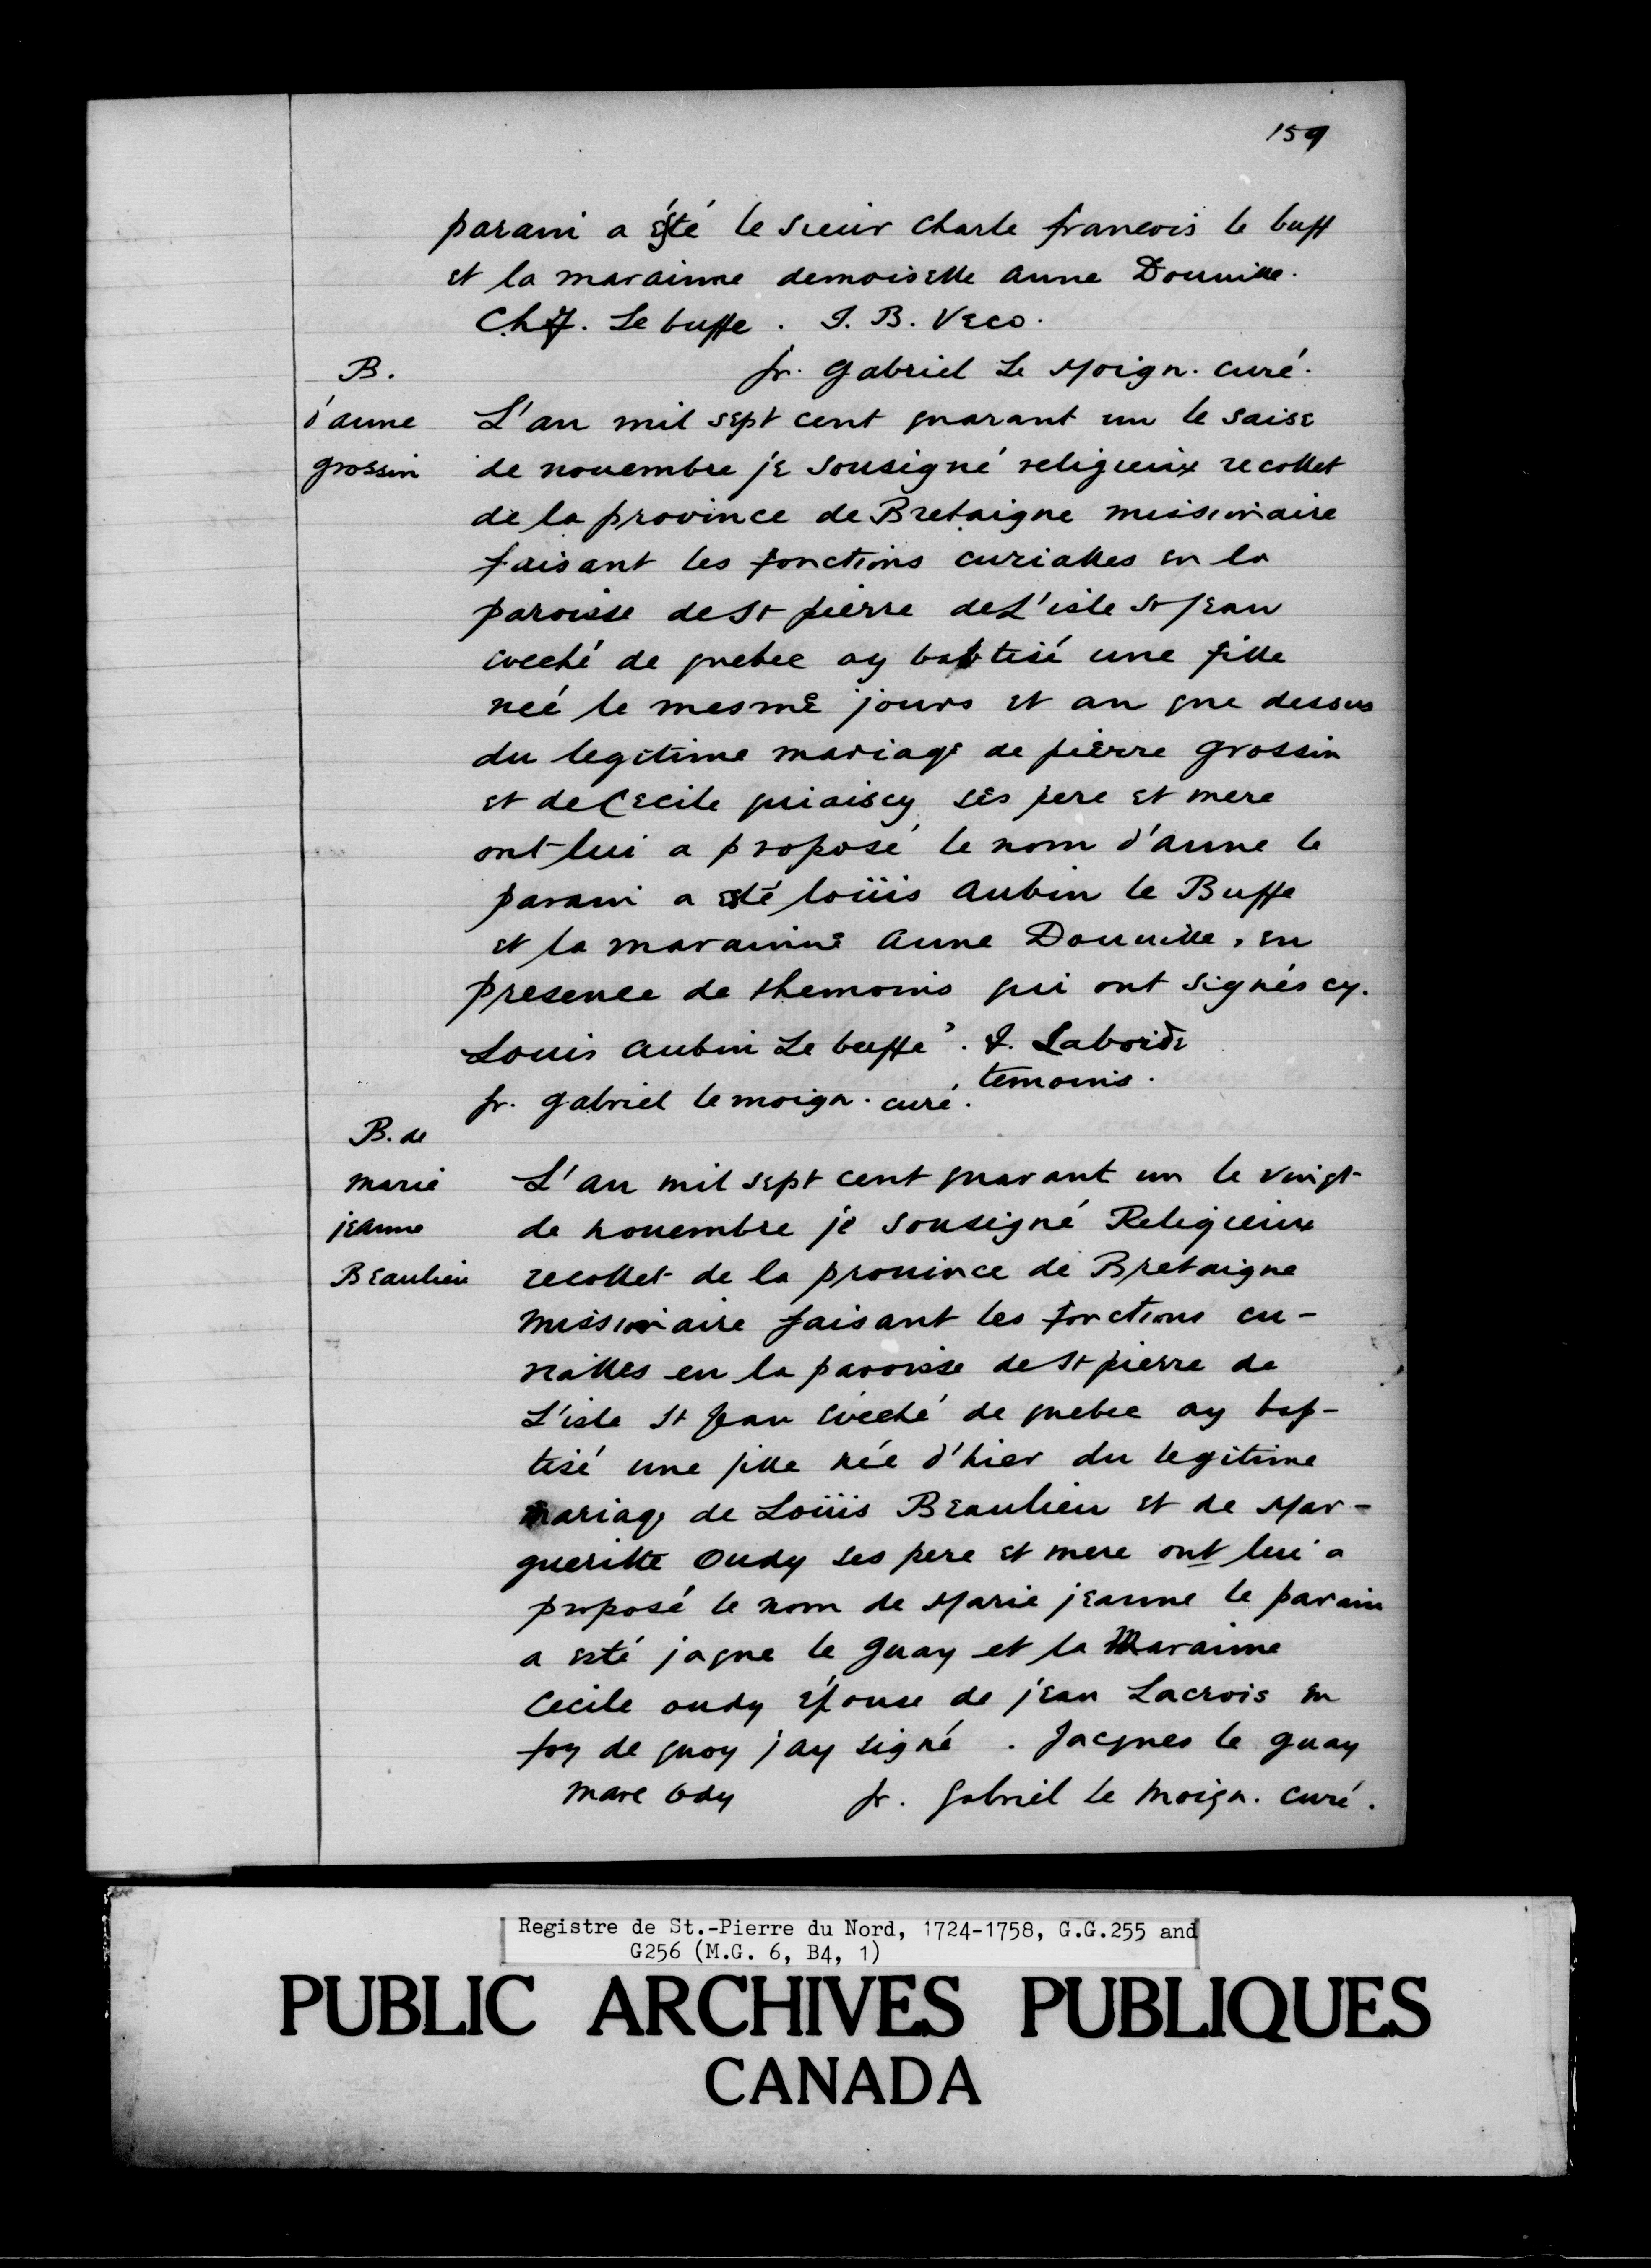 159
parain a esté le sieur Charle francois le buff
et la marainne demoiselle anne Douuille.
Ch f. Le buffe. J. B. Veco.
fr. gabriel Le Moign. curé.
B.
d'anne
grossin
L'an mil sept cent quarant un le saise
de nouembre je sousigné religieuix recollet
de la province de Bretaigne missionaire
faisant les fonctions curialles en la
paroisse de St pierre de L'isle St Jean
eveché de quebec ay babtisé une fille
neé le mesme jours et an que dessus
du legitime mariage de pierre grossin
et de Cecile quiaiscy ses pere et mere
ont lui a proposé le nom d'anne le
parain a esté loüis aubin le Buffe
et la marainne anne Douuille, en
presence de themoins qui ont signés cy.
Louis aubin Le buffe. J. Laborde
temoins.
fr. gabriel le moign. curé.
B. de
marie
jeanne
Beaulieu
L'an mil sept cent quarant un le vingt
de nouembre je sousigné Religieux
recollet de la prouince de Bretaigne
missionaire faisant les fonctions cu-
rialles en la paroisse de St pierre de
L'isle St Jean éveché de quebec ay bap-
tisé une fille née d'hier du legitime
mariage de Loüis Beaulieu et de Mar-
gueritte Oudy ses pere et mere ont lui a
proposé le nom de Marie jeanne le parain
a esté jaque le guay et la Marainne
Cecile oudy épouse de jean Lacrois en
foy de quoy jay signé. Jacques le guay
marc ody fr. Gabriel le Moign. curé.
Registre de St.-Pierre du Nord, 1724-1758, G.G.255 and
G256 (M.G. 6, B4, 1)
PUBLIC ARCHIVES PUBLIQUES
CANADA